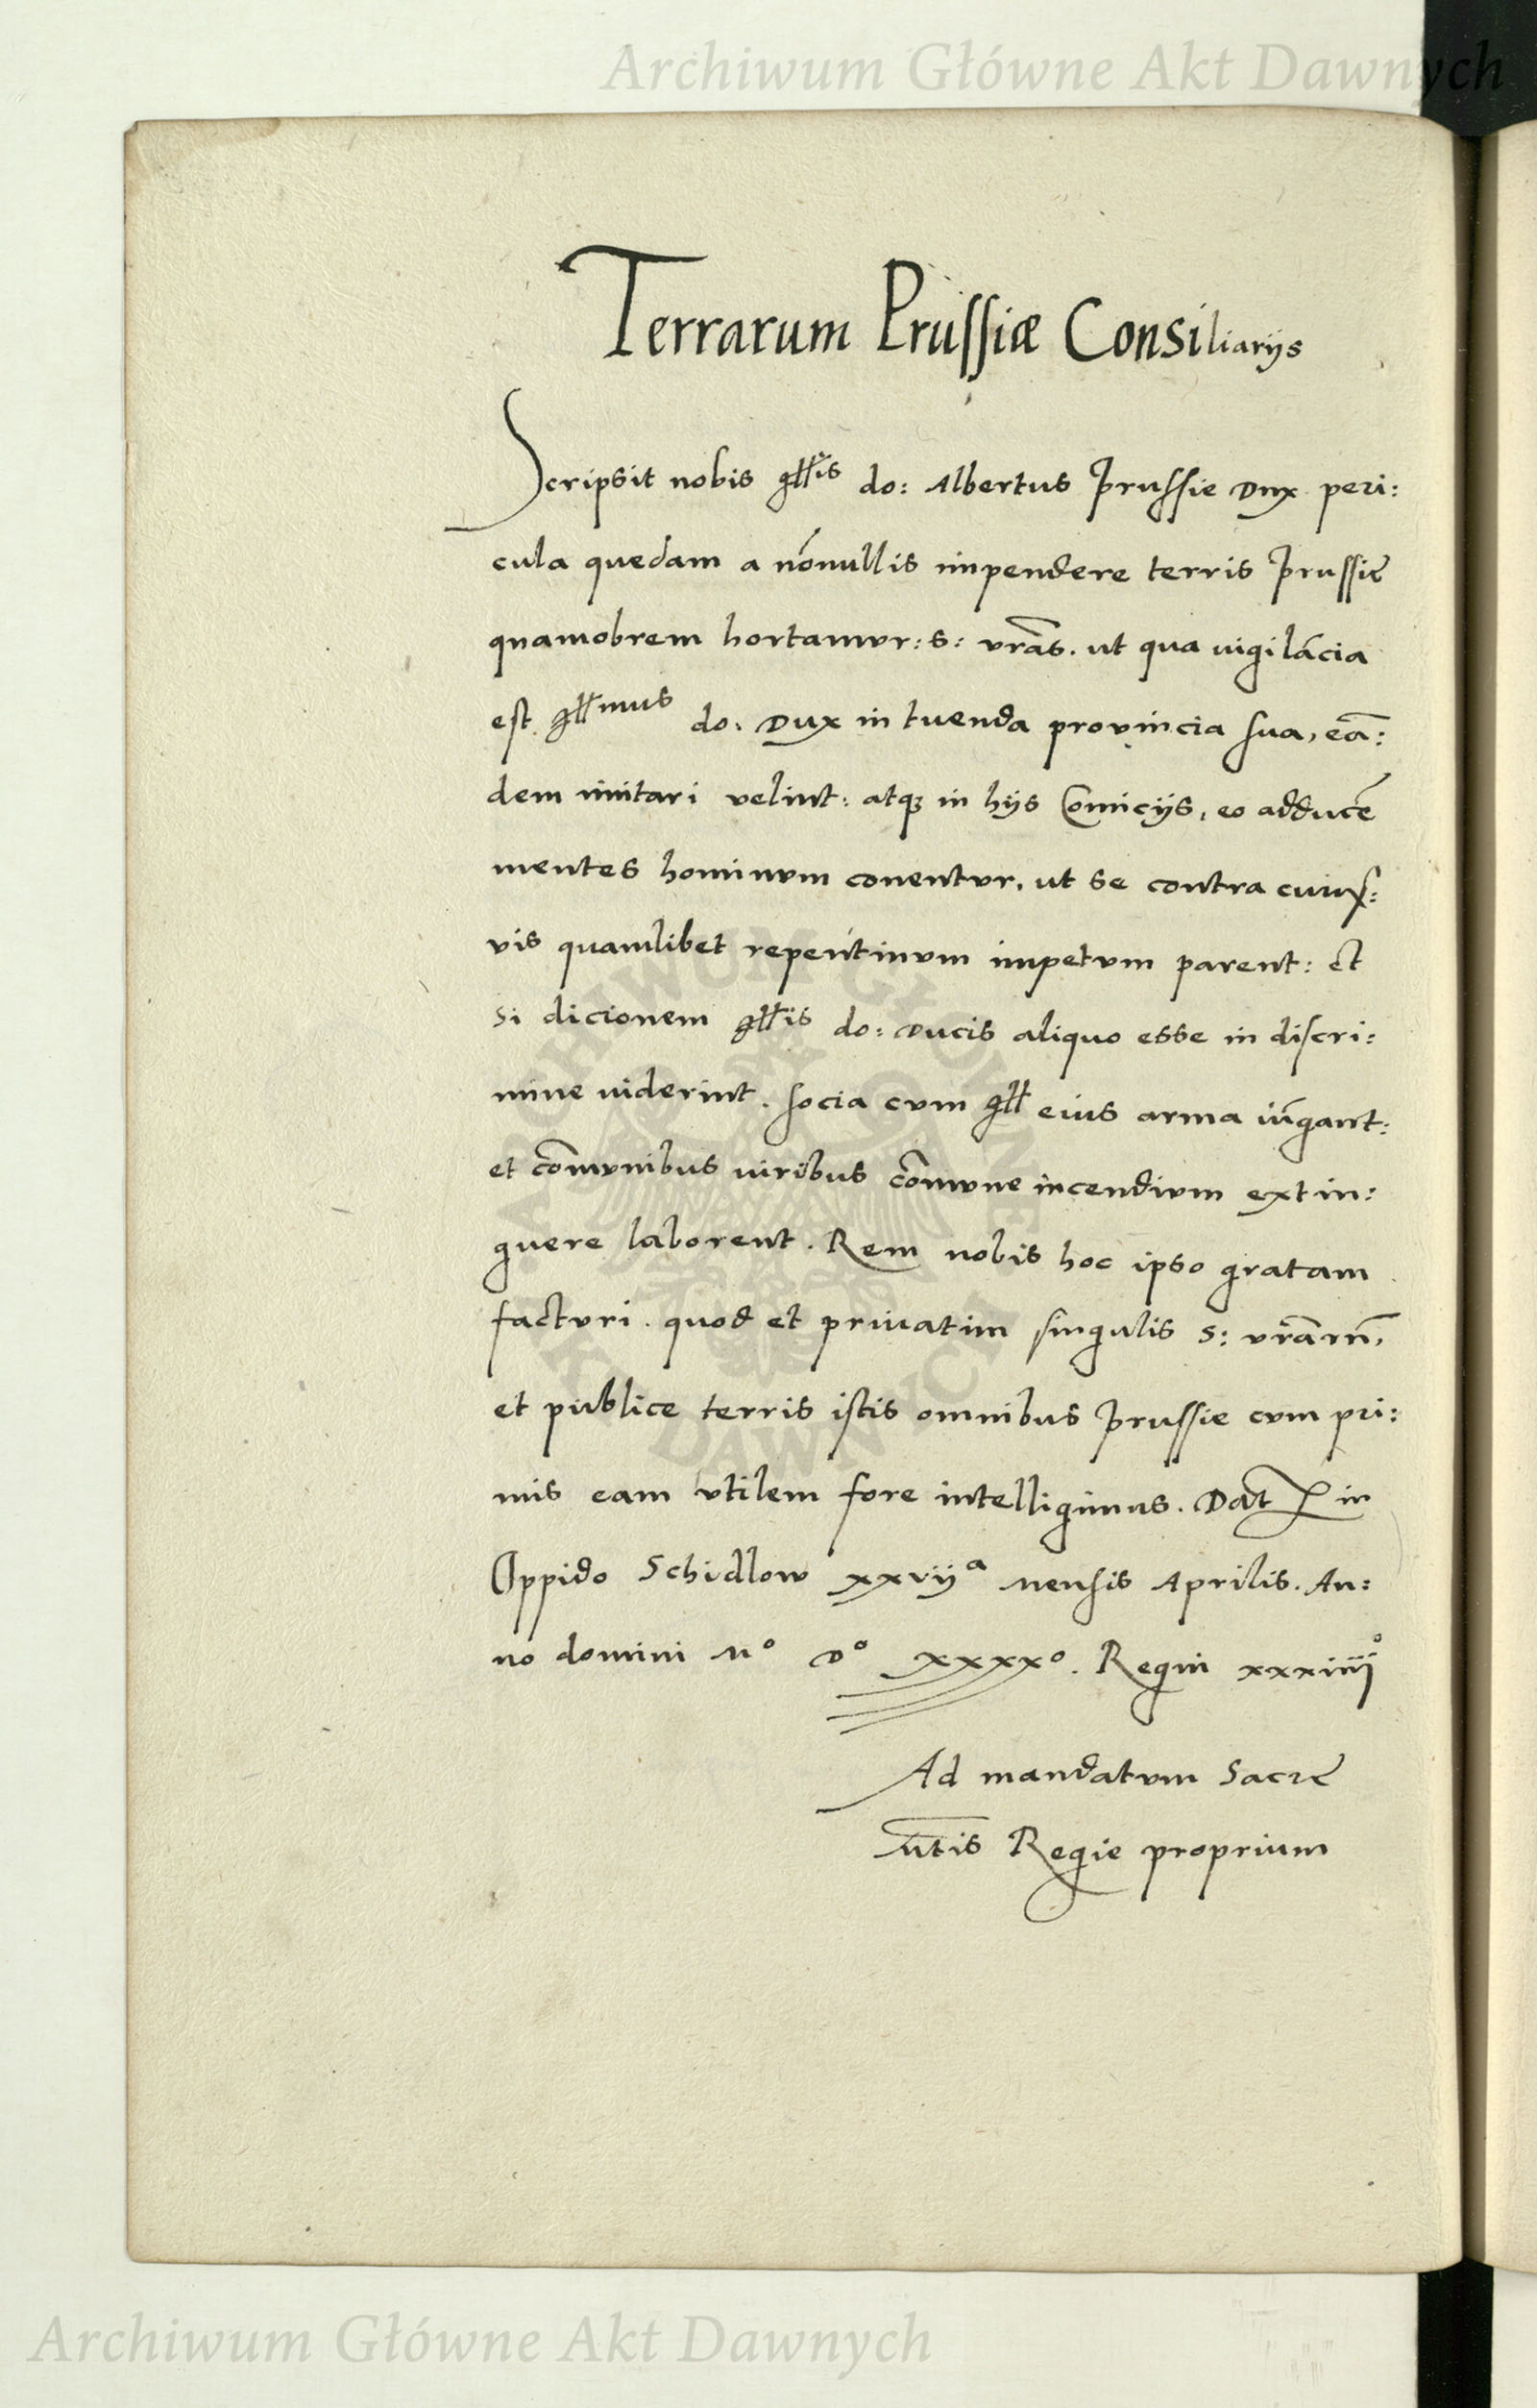 Archiwum Główne Akt Dawnych
Terrarum Prussiæ Consiliarijs
Scripsit nobis Illr̃is do: Albertus Prussie Dux peri:
cula quedam a nõnullis impendere terris Prussie
quamobrem hortamur: s: vrãs. ut qua vigilãcia
est Illmus do: Dux in tuenda provincia sua, eã:
dem imitari velint: atqꝫ in hijs Comicijs, eo adducẽ
mentes hominum conentur, ut se contra cuius:
vis quamlibet repentinum impetum parent: Et
si dicionem Illris do: Ducis aliquo esse in discri:
mine viderint. socia cum Ill eius arma iũgant:
et cõmunibus viribus cõmune incendium extin:
guere laborent. Rem nobis hoc ipso gratam
facturi. quod et privatim singulis s: vrãrũ,
et publice terris istis omnibus Prussie cum pri:
mis eam utilem fore intelligimus. Dat in
Oppido Schidlow xxvijᵃ mensis Aprilis. An:
no domini Mº Dº xxxxº. Regni xxxiiijº
Ad mandatum Sacre
Mtis Regie proprium
ARCHIWUM GŁÓWNE
AKT DAWNYCH
Archiwum Główne Akt Dawnych